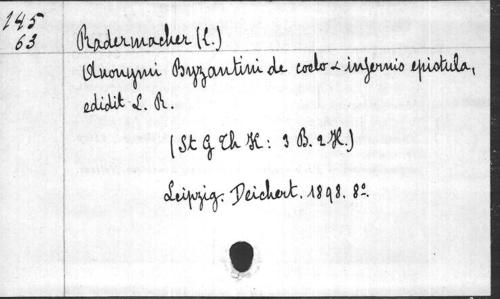 245
63
Radermacher (L.)
Anonymi Byzantini de coelo & infernis epistula,
edidit L. R.
(St G Th K: 3 B. 2 H.)
Leipzig. Deichert. 1898. 8º.